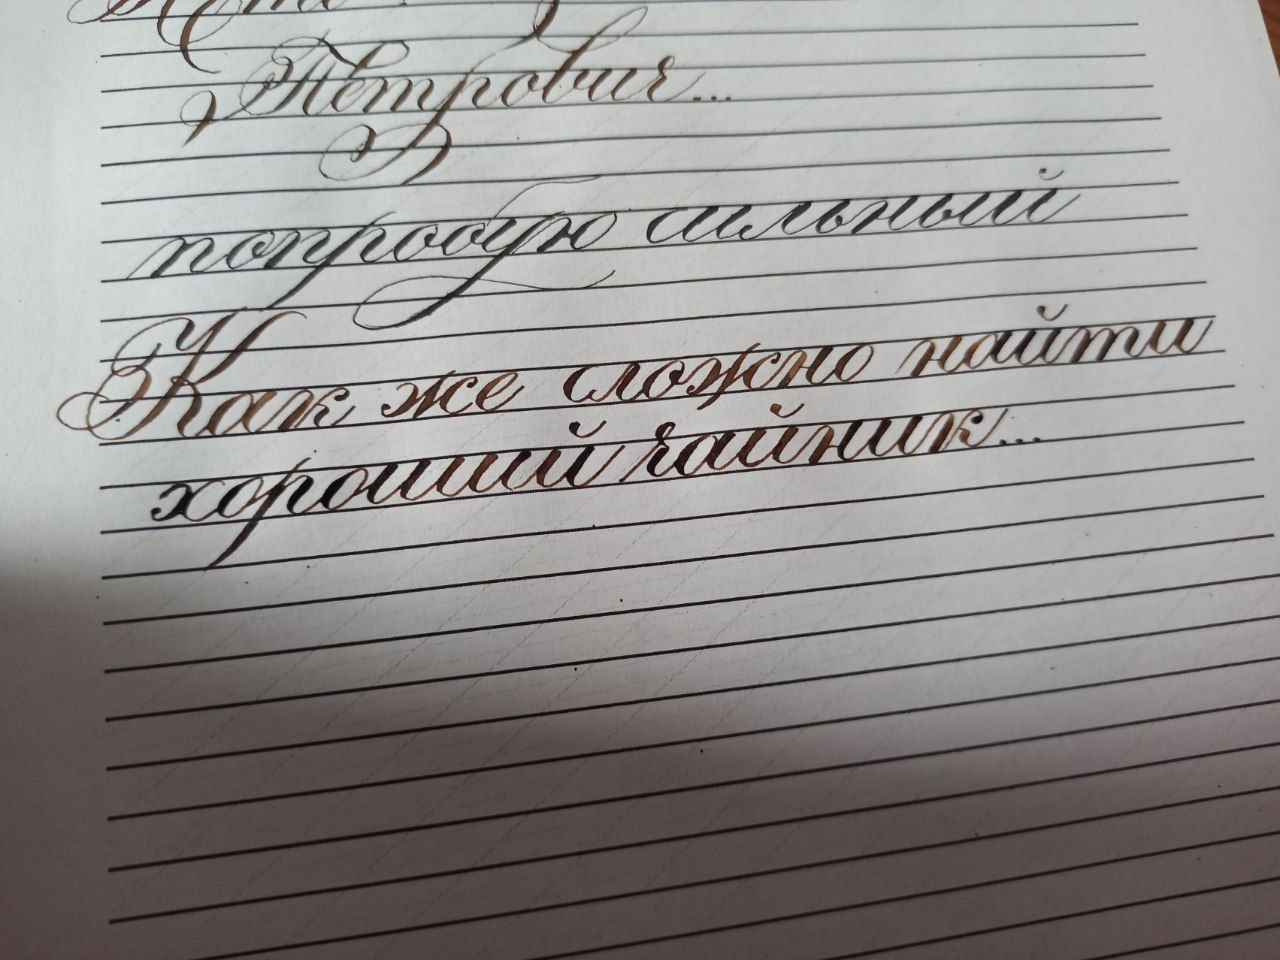 Петрович...
попробую сильный
Как же сложно найти
хороший чайник...